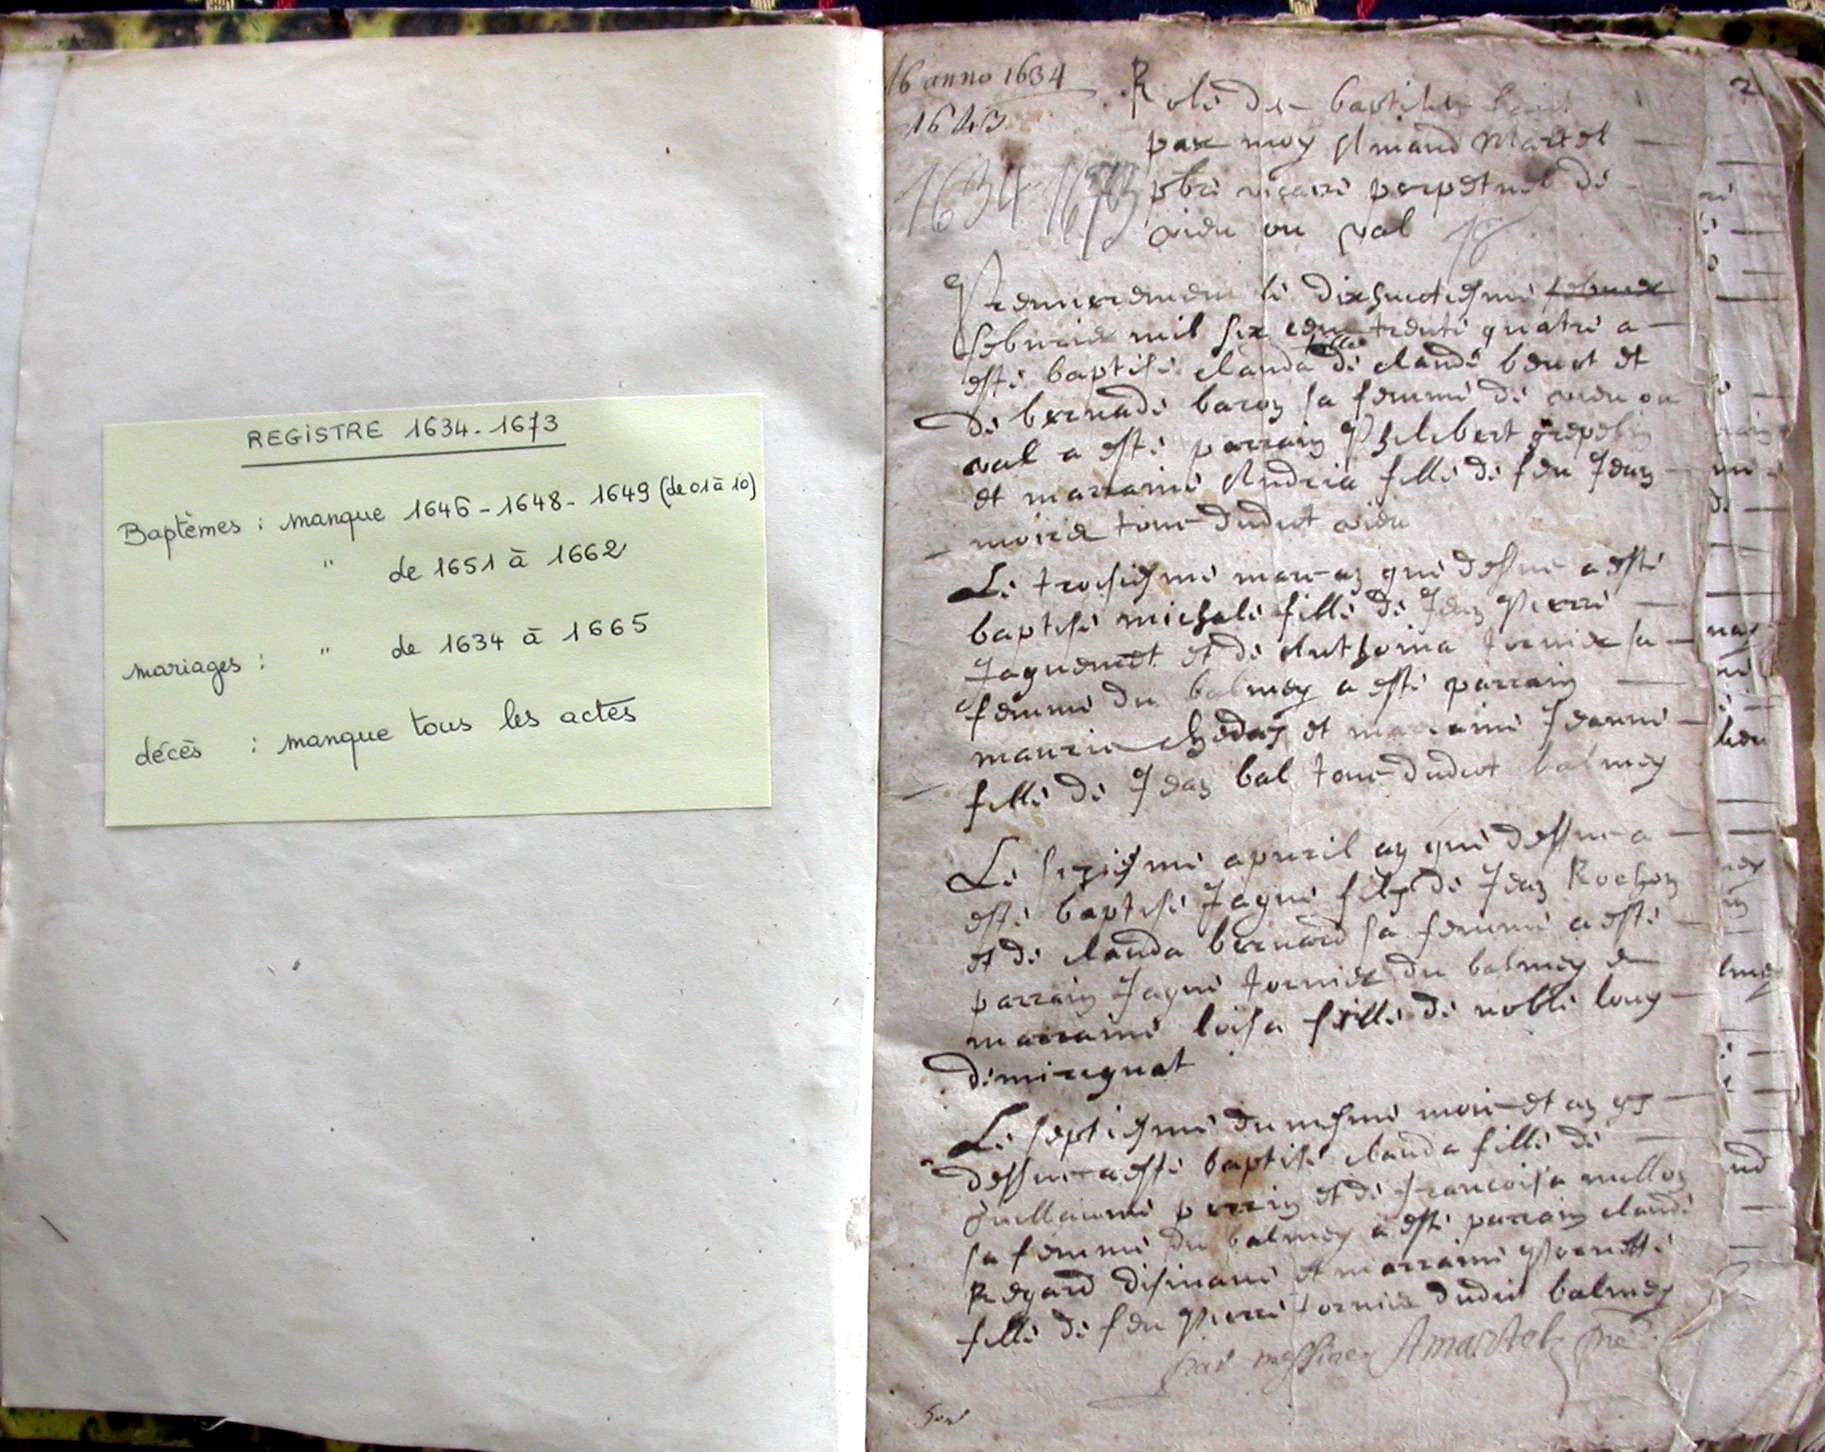 REGISTRE 1634-1673
Baptêmes : manque 1646 - 1648 - 1649 (de 01 à 10)
" de 1651 à 1662
mariages : " de 1634 à 1665
décès : manque tous les actes
anno 1634
1643
1634 1673
2
Role des baptisés
par moy Amand Martel
pbre vicaire perpetuel de
vieu ou val
Premierement le dixhuictiesme
febvrier mil six cent trente quatre a
fille
esté baptisé clauda de claude benet et
de bernade baron sa femme de vieu ou
val a esté parrain Philibert
et marraine Andria fille de feu Jean
tous dudict vieu
Le troisiesme mars an que dessus a esté
baptisé michale fille de Jean Pierre
Jaquemet et de Anthoina tornier sa
femme du balmey a esté parrain
mauris et marraine Jeanne
fille de Jean bal tous dudict balmey
Le apvril an que dessus a
esté baptisé Jaque filz de Jean Rochon
et de clauda bernard sa femme a esté
parrain Jaque tornier du balmey et
marraine loisa fille de noble louy
demiregnat
Le septiesme du mesme mois et an que
dessus a esté baptisé clauda fille de
guillaume perrin et de francoisa millon
sa femme du balmey a esté parrain claude
Regard et marraine Pernette
fille de feu Pierre tornier dudict balmey
par messire Amartel pbre